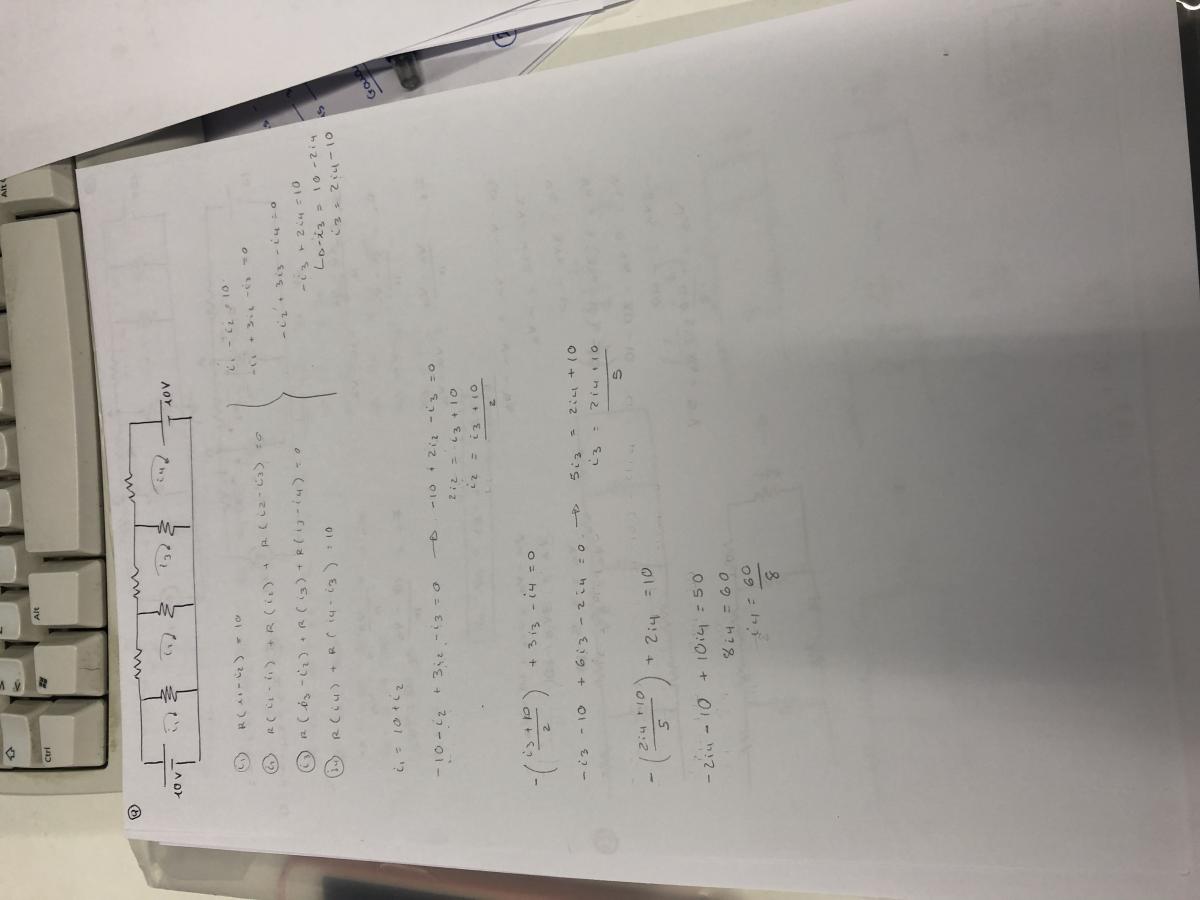 10V
i1
i2
i3
i4
10V
i1 R(i1-i2) = 10
i2 R(i2-i1) + R(i2) + R(i2-i3) = 0
i3 R(i3-i2) + R(i3) + R(i3-i4) = 0
i4 R(i4) + R(i4-i3) = 10
i1 - i2 = 10
-i1 + 3i2 - i3 = 0
-i2 + 3i3 - i4 = 0
-i3 + 2i4 = 10
-i3 = 10 - 2i4
i3 = 2i4 - 10
i1 = 10 + i2
-10 - i2 + 3i2 - i3 = 0 → -10 + 2i2 - i3 = 0
2i2 = i3 + 10
i2 = i3 + 10
2
-(i3 + 10 / 2) + 3i3 - i4 = 0
-i3 - 10 + 6i3 - 2i4 = 0 → 5i3 = 2i4 + 10
i3 = 2i4 + 10
5
-(2i4 + 10 / 5) + 2i4 = 10
-2i4 - 10 + 10i4 = 50
8i4 = 60
i4 = 60
8
Alt
Ctrl
Alt